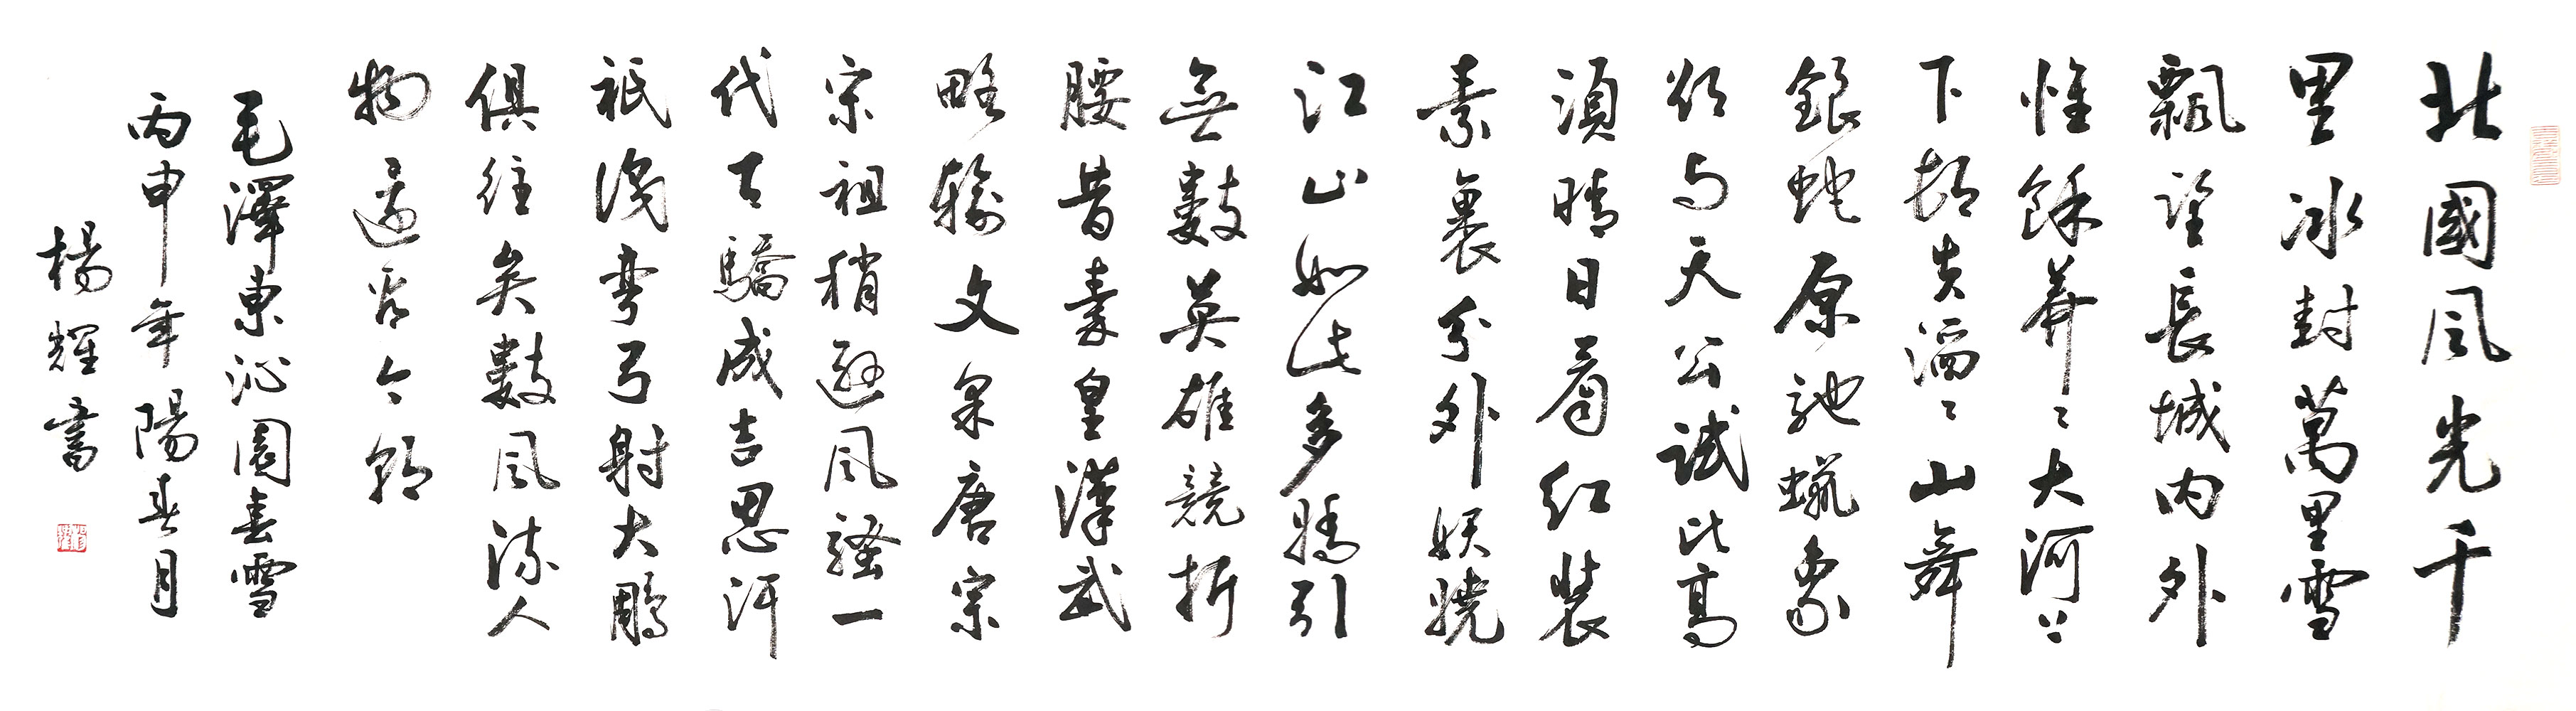 北國風光千
里冰封萬里雪
飄望長城內外
惟餘莽々大河上
下頓失滔々山舞
銀蛇原馳蠟象
欲与天公試比高
須晴日看紅裝
素裹分外妖嬈
江山如此多嬌引
無數英雄競折
腰昔秦皇漢武
略輸文采唐宗
宋祖稍遜風騷一
代天驕成吉思汗
祇識彎弓射大鵰
俱往矣數風流人
物還看今朝
毛澤東沁園春雪
丙申年陽春月
楊耀書